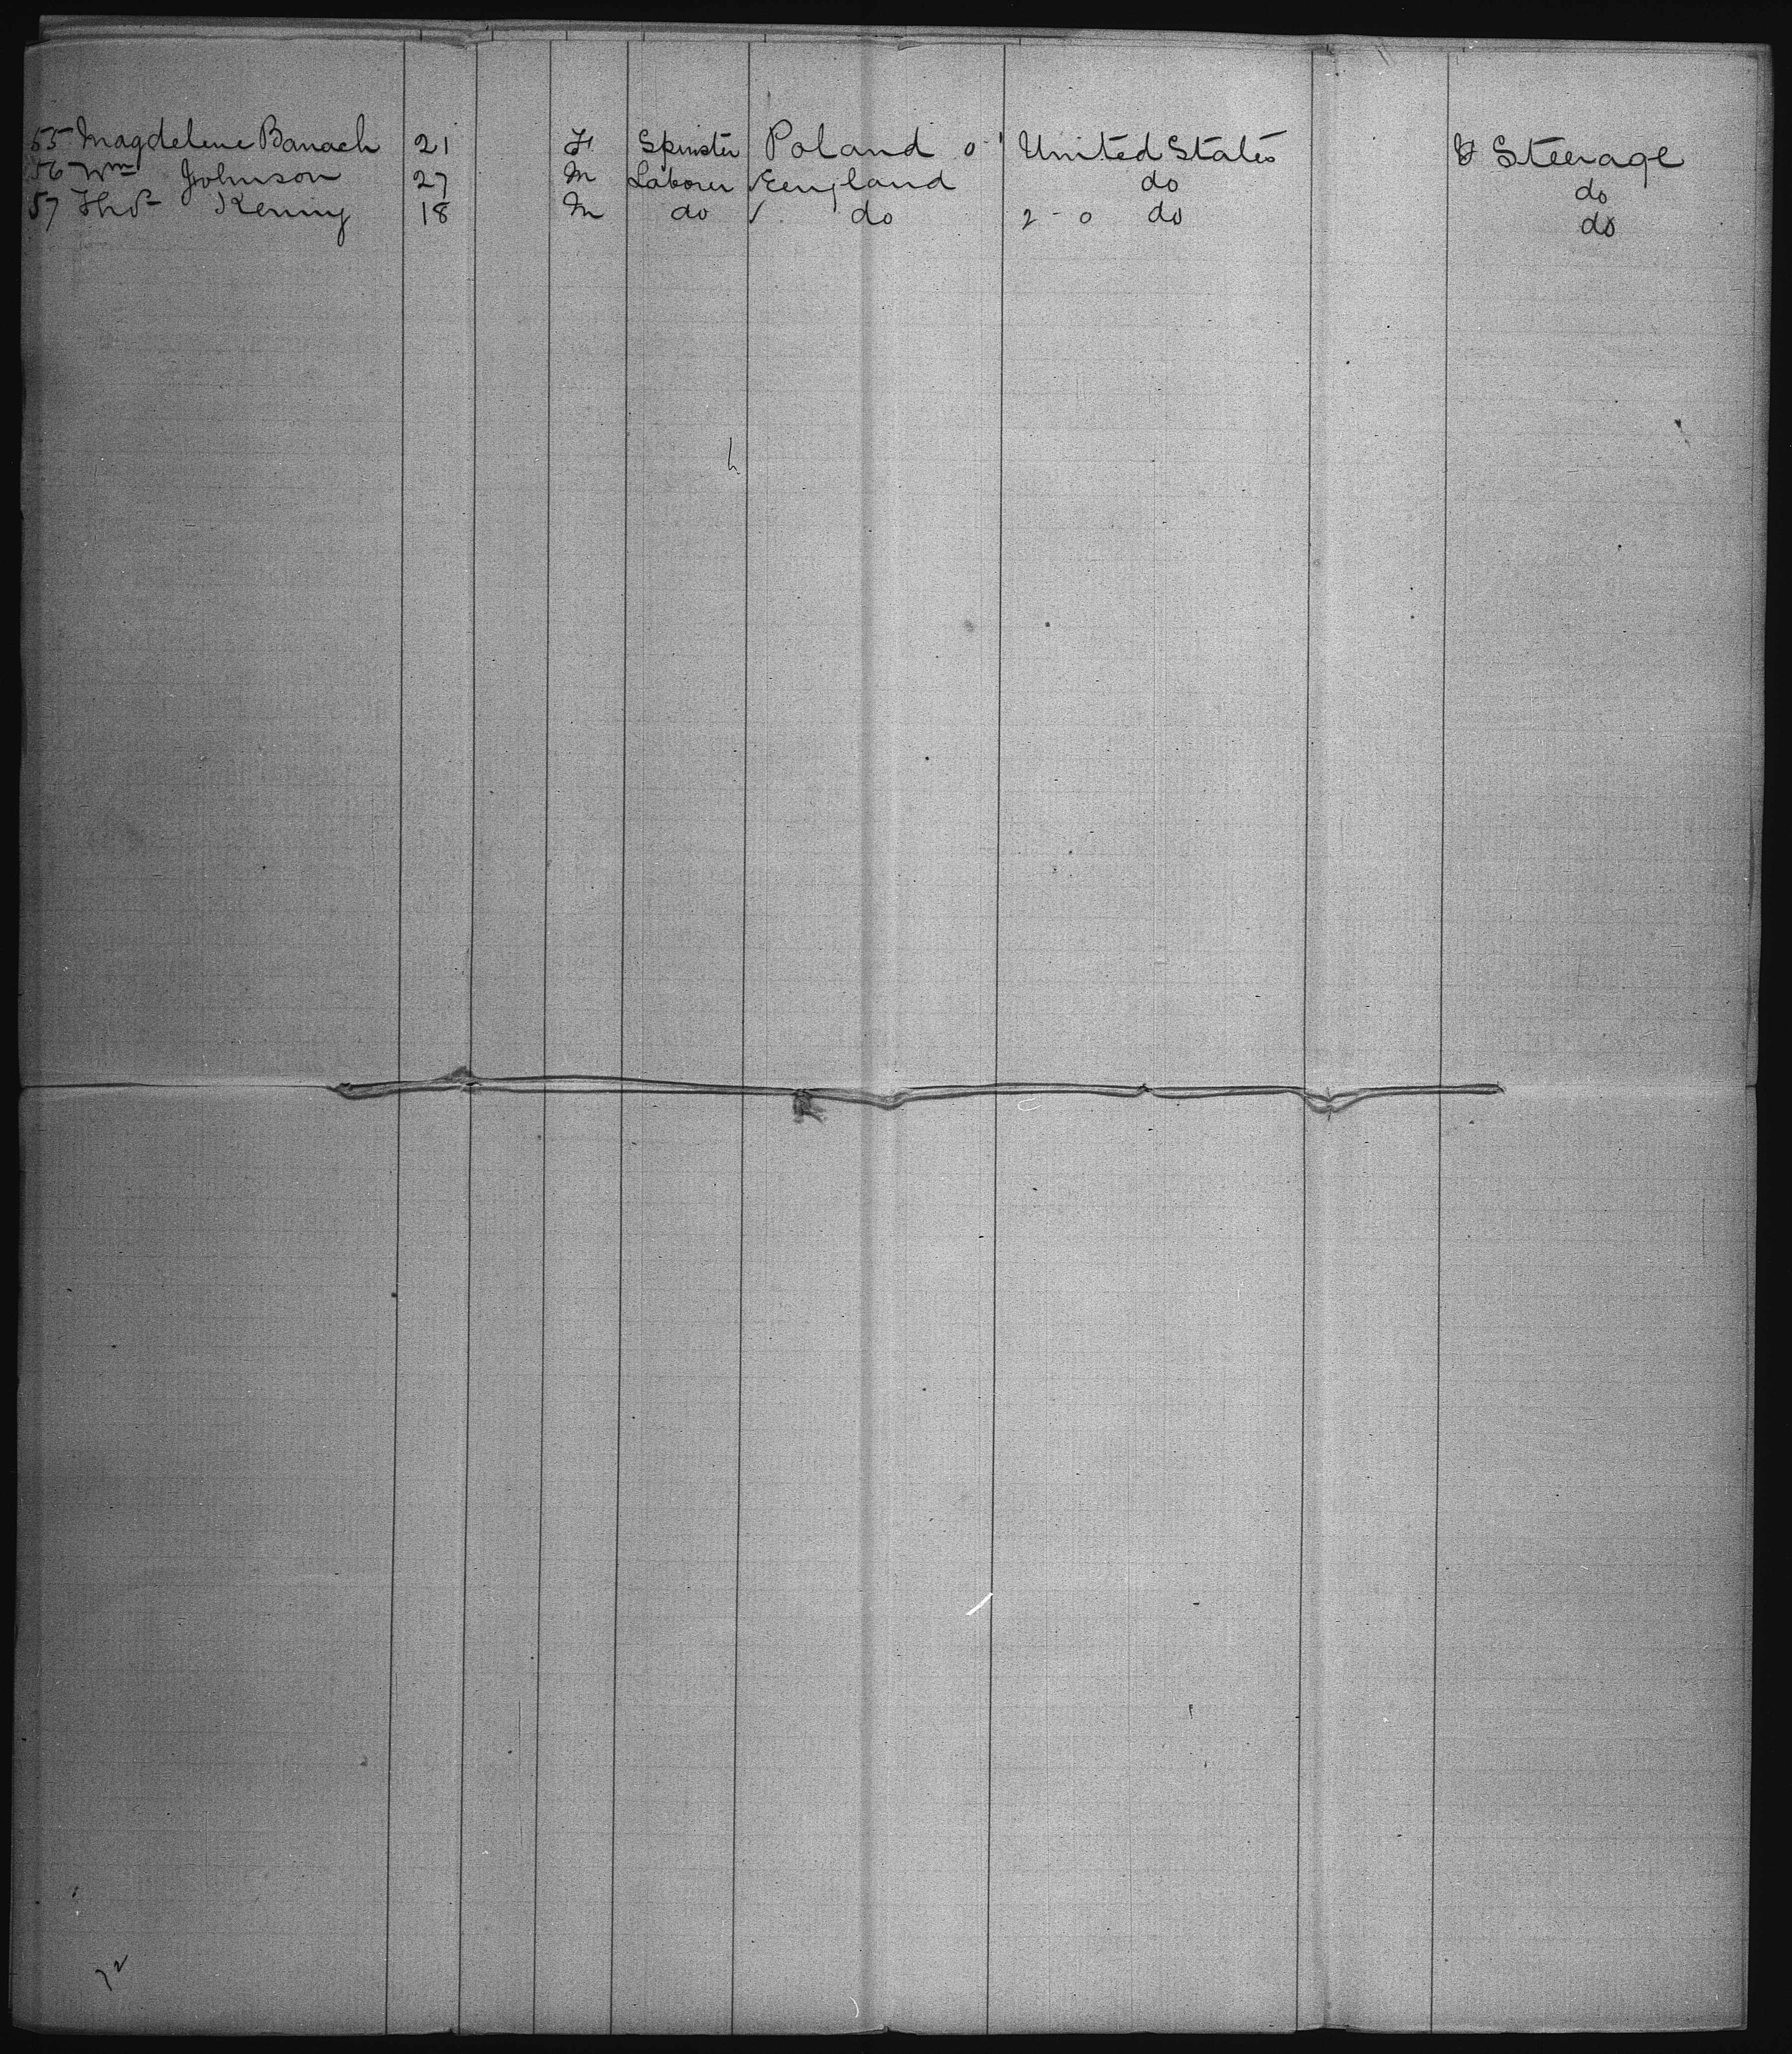 55 Magdelene Banach 21 F Spinster Poland 0-1 United States Steerage
56 Wm Johnson 27 M Laborer England do do
57 Thos Kenny 18 M do do 2-0 do do
72